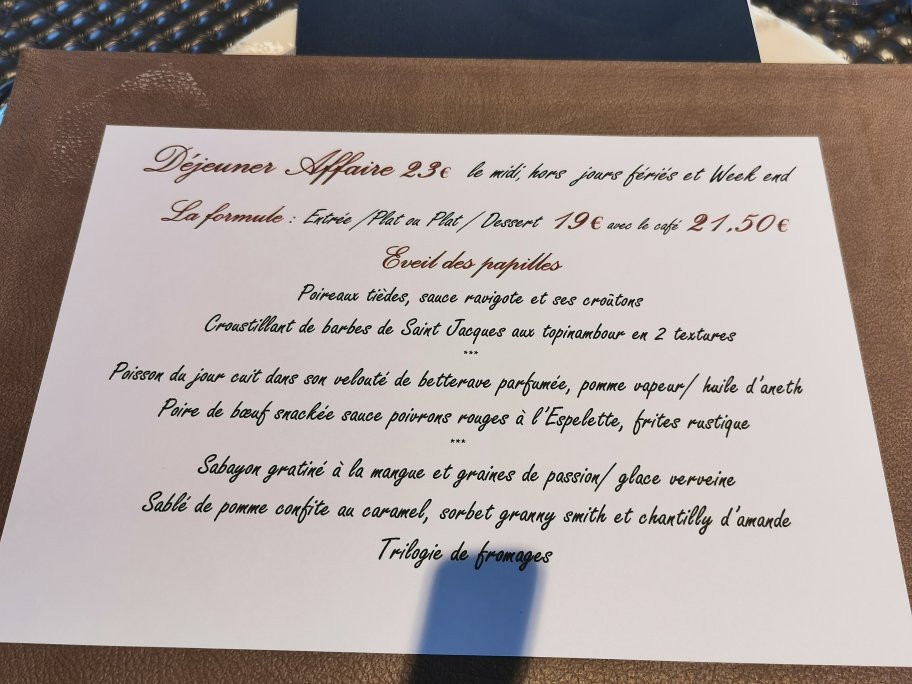 Déjeuner Affaire 23€ le midi, hors jours fériés et Week end
La formule : Entrée /Plat ou Plat / Dessert 19€ avec le café 21,50€
Eveil des papilles
Poireaux tièdes, sauce ravigote et ses croûtons
Croustillant de barbes de Saint Jacques aux topinambour en 2 textures
***
Poisson du jour cuit dans son velouté de betterave parfumée, pomme vapeur/ huile d'aneth
Poire de bœuf snackée sauce poivrons rouges à l'Espelette, frites rustique
***
Sabayon gratiné à la mangue et graines de passion/ glace verveine
Sablé de pomme confite au caramel, sorbet granny smith et chantilly d'amande
Trilogie de fromages